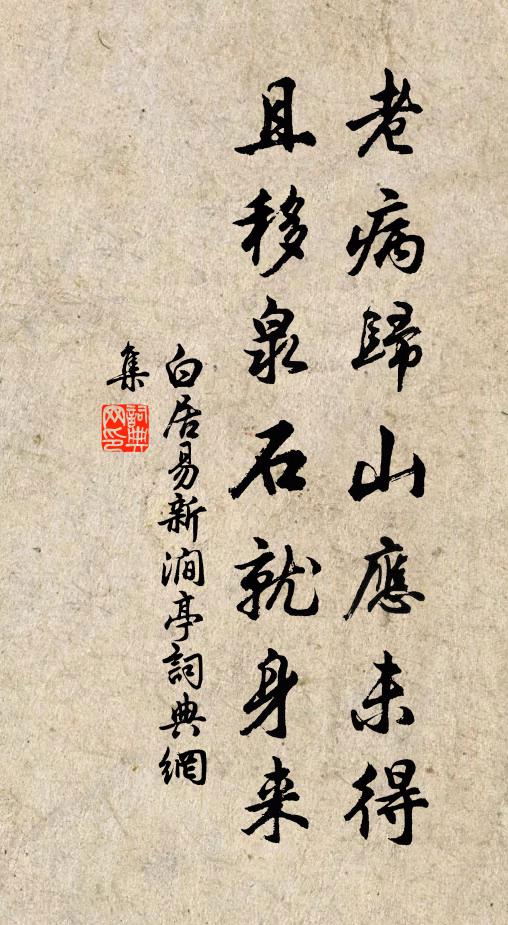 老病歸山應未得
且移泉石就身来
白居易新澗亭詞典網
集
詞典
网印